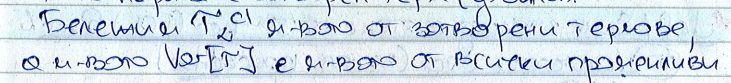 Бележим T_L^cl м-вото от затворени термове,
а м-вото Var[T] е м-вото от всички променливи